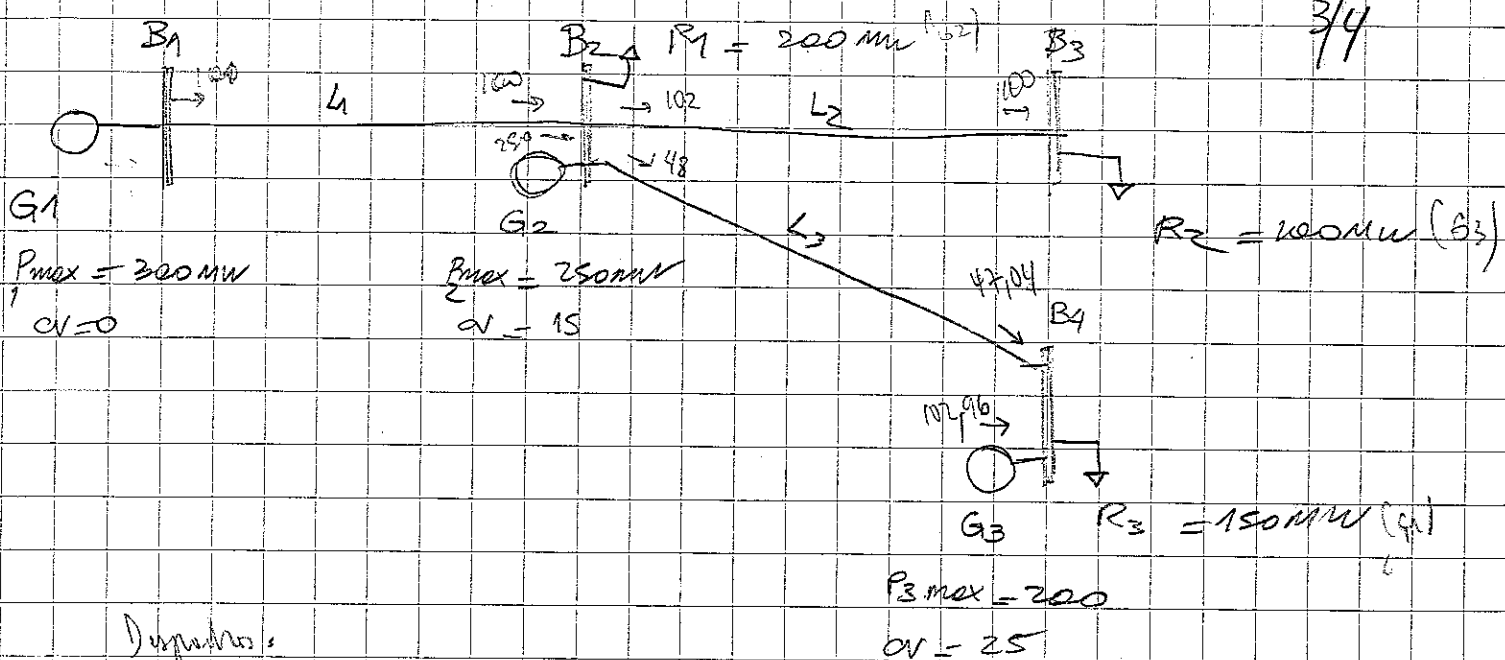 3/4
B1
B2
P1 = 200 MW (G2)
B3
100
L1
100
102
L2
100
250
48
G1
G2
L3
R2 = 100MW (G3)
Pmax1 = 300MW
CV=0
Pmax2 = 250MW
CV = 15
47,04
B4
102,96
G3
R3 = 150MW (G1)
P3 max = 200
CV = 25